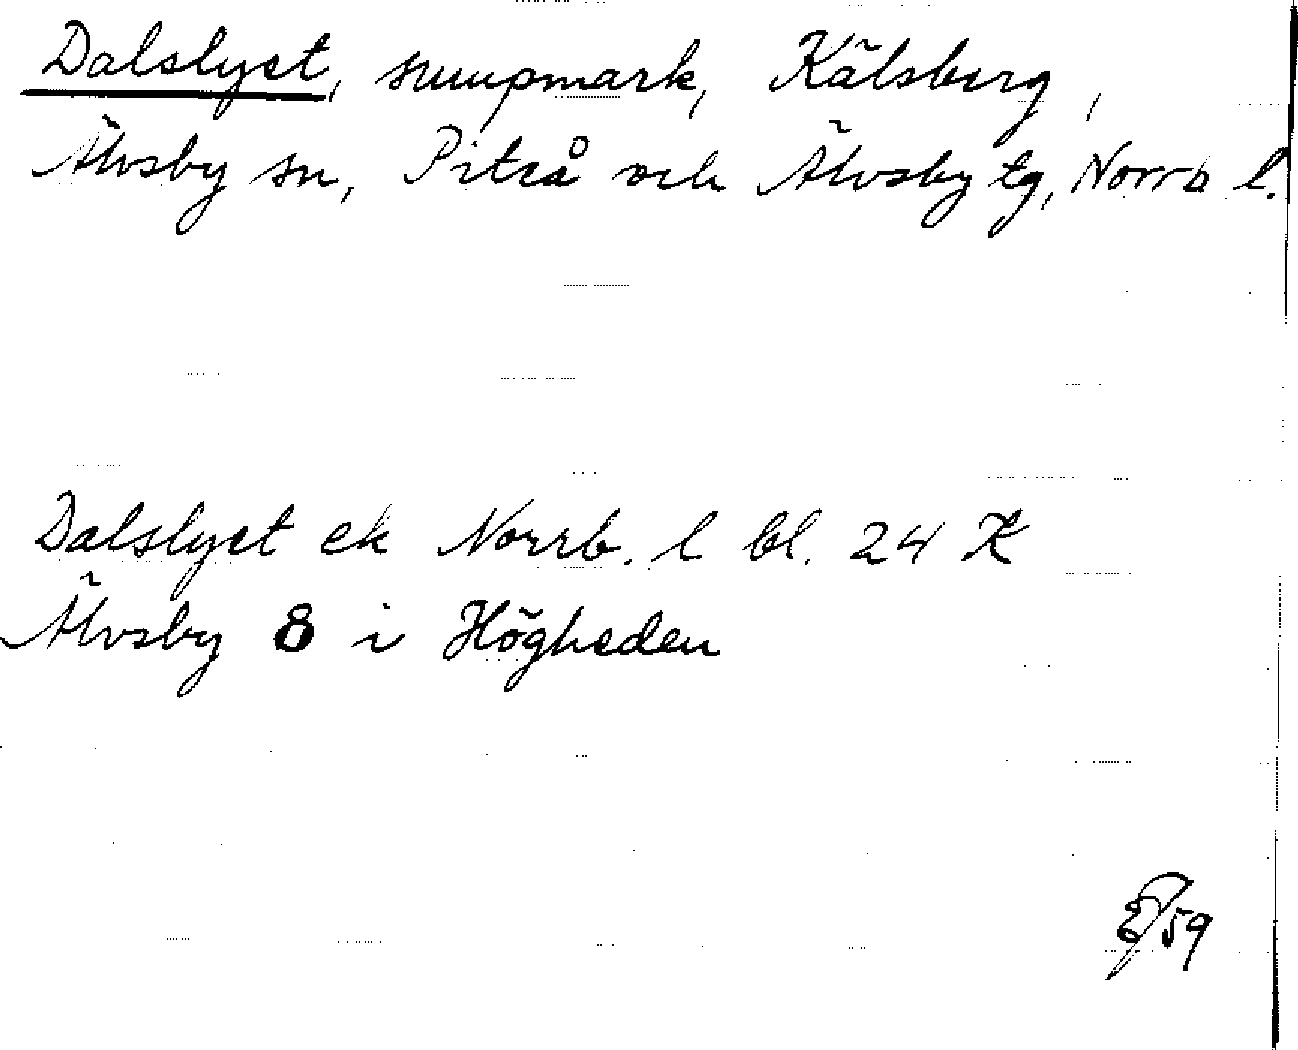 Dalslyet, snuupmark, Kälsberg,
Älvsby sn, Piteå och Älvsby tg, Norrb l.
Dalslyet ek Norrb. l bl. 24 K
Älvsby 8 i Högheden
/59